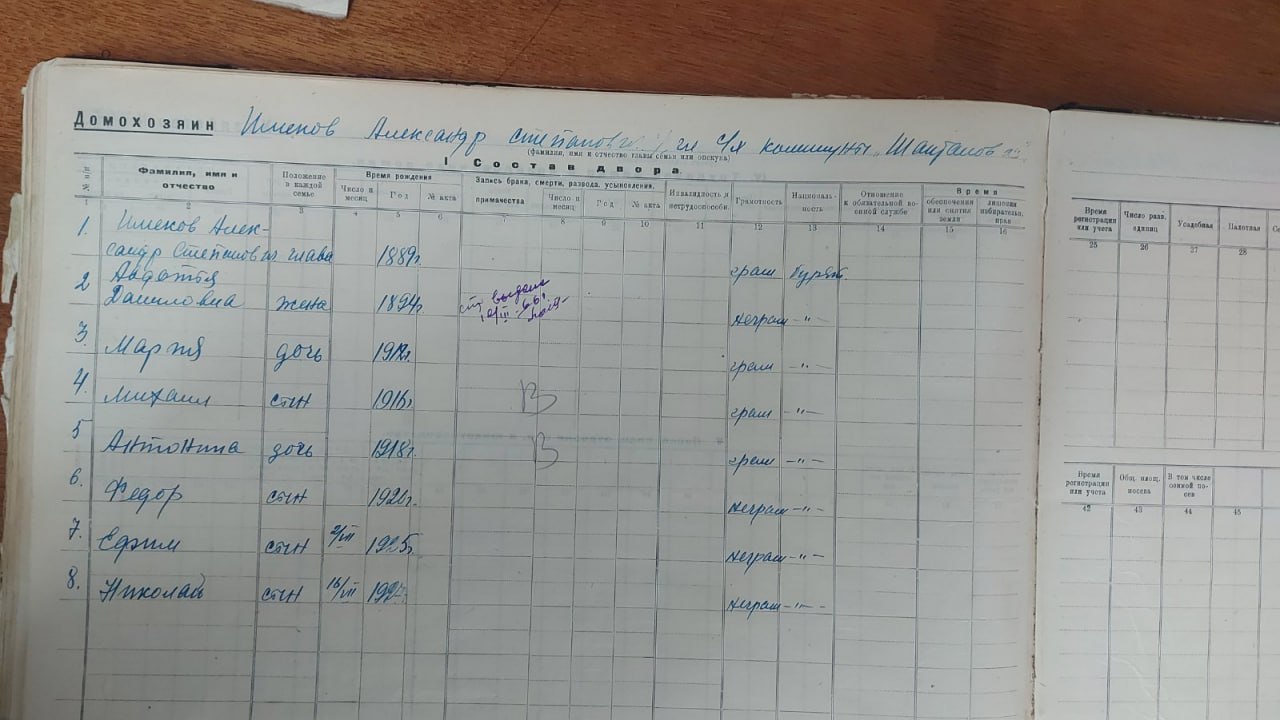 Домохозяин Именов Александр Степанович чл с/х коммуны „Шантанов
(фамилия, имя и отчество главы семьи или опекуна)
I Состав двора
№ п/п
Фамилия, имя и отчество
Положение в каждой семье
Время рождения
Число и месяц
Год
№ акта
Запись брака, смерти, развода, усыновления, примачества
Число и месяц
Год
№ акта
Инвалидность и нетрудоспособн.
Грамотность
Националь- ность
Отношение к обязательной во- енной службе
Время
обеспечения или снятия земли
лишения избирательн. прав
1 2 3 4 5 6 7 8 9 10 11 12 13 14 15 16
1. Именов Алек-
сандр Степанович глава 1889г. грам бурят
2 Авдотья
Даниловна жена 1894г. неграм -"-
10/III-66г.
3. Мария дочь 1912г. грам -"-
4. Михаил сын 1916г. В грам -"-
5 Антонина дочь 1918г. В грам -"-
6. Федор сын неграм -"-
7. Ефим сын 2/VII 1925г. неграм -"-
8. Николай сын 16/VII неграм -"-
Время регистрации или учета
Число разв. единиц
Усадебная
Палотная
25 26 27 28
Время регистрации или учета
Общ. площ. посева
В том числе озимой по- сев
42 43 44 45